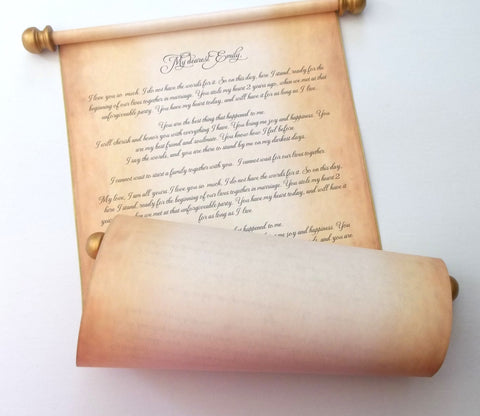 My dearest Emily,
I love you so much, I do not have the words for it. So on this day, here I stand, ready for the
beginning of our lives together in marriage. You stole my heart 2 years ago, when we met at that
unforgivable party. You have my heart today, and will have it for as long as I live.
You are the best thing that happened to me.
I will cherish and honor you with everything I have. You bring me joy and happiness. You
are my best friend and soulmate. You know how I feel before
I say the words, and you are there to stand by me on my darkest days.
I cannot wait to start a family together with you. I cannot wait for our lives together.
My love, I am all yours. I love you so much, I do not have the words for it. So on this day,
here I stand, ready for the beginning of our lives together in marriage. You stole my heart 2
years ago, when we met at that unforgivable party. You have my heart today, and will have it
for as long as I live.
that happened to me.
me joy and happiness. You
and you are